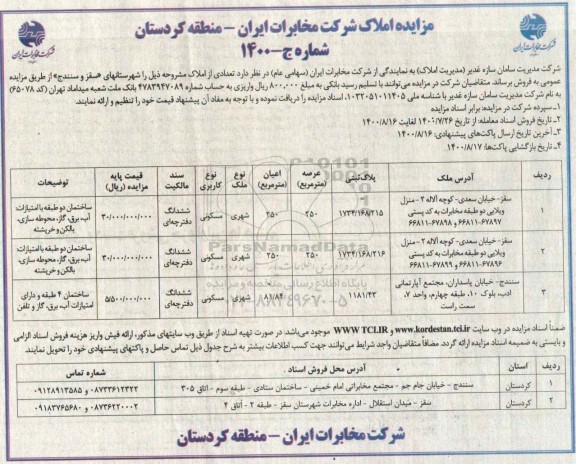 مزایده املاک شرکت مخابرات ایران - منطقه کردستان
شماره ج-۱۴۰۰
شرکت مخابرات ایران
شرکت مدیریت سامان سازه غدیر (مدیریت املاک) به نمایندگی از شرکت مخابرات ایران (سهامی عام) در نظر دارد تعدادی از املاک مشروحه ذیل را شهرستانهای «سقز و سنندج» از طریق مزایده
عمومی به فروش برساند. متقاضیان شرکت در مزایده می‌توانند با تسلیم رسید بانکی به مبلغ ۸۰۰,۰۰۰ ریال واریزی به حساب شماره ۴۷۸۳۹۴۷۰۸۹ بانک ملت شعبه میدامد تهران (کد ۶۵۰۷۸)
به نام شرکت مدیریت سامان سازه غدیر با شناسه ملی ۱۰۳۲۰۵۱۰۱۱۴۰۵، اسناد مزایده را دریافت نموده و با توجه به مفاد آن پیشنهاد قیمت خود را تنظیم و ارائه نمایند.
۱- سپرده شرکت در مزایده: برابر اسناد مزایده
۲- تاریخ فروش اسناد معامله: از تاریخ ۱۴۰۰/۷/۲۶ لغایت ۱۴۰۰/۸/۱۶
۳- آخرین تاریخ ارسال پاکت‌های پیشنهادی: ۱۴۰۰/۸/۱۶
۴- تاریخ بازگشایی پاکت‌ها: ۱۴۰۰/۸/۱۷
ردیف | آدرس ملک | پلاک ثبتی | عرصه (مترمربع) | اعیان (مترمربع) | نوع ملک | نوع کاربری | سند مالکیت | قیمت پایه مزایده (ریال) | توضیحات
۱ | سقز- خیابان سعدی- کوچه آلاله ۲ -منزل ویلایی دو طبقه مخابرات به کد پستی ۶۶۸۱۱-۶۷۸۹۷ و ۶۶۸۱۱-۶۷۸۹۸ | ۱۷۳۴/۱۶۸/۲۱۵ | ۲۵۰ | ۲۵۰ | شهری | مسکونی | ششدانگ دفترچه‌ای | ۳۰/۰۰۰/۰۰۰/۰۰۰ | ساختمان دو طبقه با امتیازات آب، برق، گاز، محوطه سازی، بالکن و خرپشته
۲ | سقز- خیابان سعدی- کوچه آلاله ۲ -منزل ویلایی دو طبقه مخابرات به کد پستی ۶۶۸۱۱-۶۷۸۹۶ و ۶۶۸۱۱-۶۷۸۹۹ | ۱۷۳۴/۱۶۸/۲۱۶ | ۲۵۰ | ۲۵۰ | شهری | مسکونی | ششدانگ دفترچه‌ای | ۳۰/۰۰۰/۰۰۰/۰۰۰ | ساختمان دو طبقه با امتیازات آب، برق، گاز، محوطه سازی، بالکن و خرپشته
۳ | سنندج- خیابان پاسداران، مجتمع آپارتمانی ادب، بلوک ۱۰، طبقه چهارم، واحد ۷، سمت راست | ۱۱۸۱/۴۳ | ۸۱/۸۴ | شهری | مسکونی | ششدانگ دفترچه‌ای | ۵/۵۰۰/۰۰۰/۰۰۰ | ساختمان ۴ طبقه و دارای امتیازات آب، برق، گاز و تلفن
ParsNamadData
پایگاه اطلاع رسانی مناقصه و مزایده
۸۸۳۴۹۶۷۰-۵
ضمناً اسناد مزایده در وب سایت www.kordestan.tci.ir و WWW TCI.IR موجود می‌باشد. در صورت تهیه اسناد از طریق وب سایتهای مذکور، ارائه فیش واریز هزینه فروش اسناد الزامی
و بایستی به ضمیمه اسناد مزایده ارائه گردد. مضافاً متقاضیان واجد شرایط می‌توانند جهت کسب اطلاعات بیشتر به شرح جدول ذیل تماس حاصل و پاکتهای پیشنهادی خود را تحویل نمایند.
ردیف | استان | آدرس محل فروش اسناد | شماره تماس
۱ | کردستان | سنندج - خیابان جام جم - مجتمع مخابراتی امام خمینی - ساختمان ستادی - طبقه سوم - اتاق ۳۰۵ | ۰۸۷۳۳۶۱۲۳۲۲ و ۰۹۱۲۸۹۱۳۵۸۵
۲ | کردستان | سقز - میدان استقلال - اداره مخابرات شهرستان سقز - طبقه ۲ - اتاق ۴ | ۰۸۷۳۶۲۲۰۰۰۲ و ۰۹۱۸۳۷۶۵۶۸۰
شرکت مخابرات ایران - منطقه کردستان